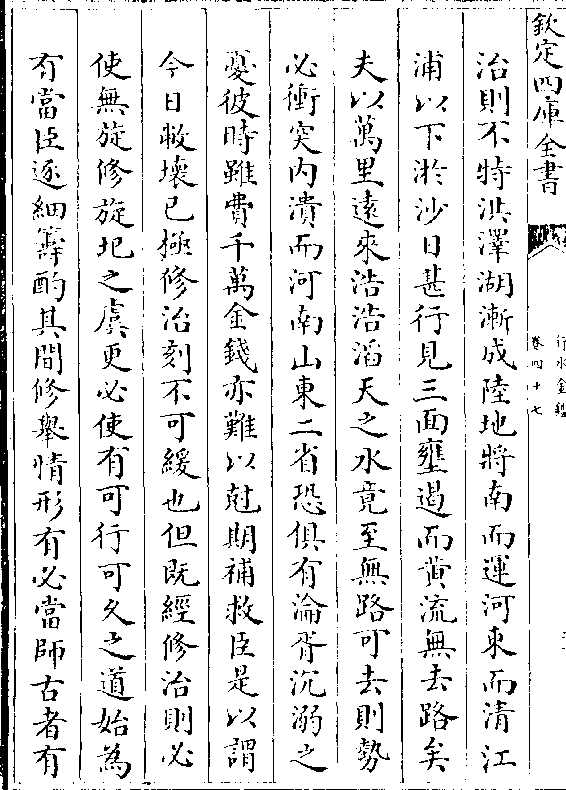 欽定四庫全書
行水金鑑
卷四十七
治則不特洪澤湖漸成陸地將南而運河東而清江
浦以下淤沙日甚行見三面壅遏而黄流無去路矣
夫以萬里遠來浩浩滔天之水竟至無路可去則勢
必衝突内潰而河南山東二省恐俱有淪胥沉溺之
憂彼時雖費千萬金錢亦難以尅期補救臣是以謂
今日敝壞已極修治刻不可緩也但既經修治則必
使無旋修旋圯之虞更必使有可行可久之道始為
有當臣逐細籌酌其間修舉情形有必當師古者有